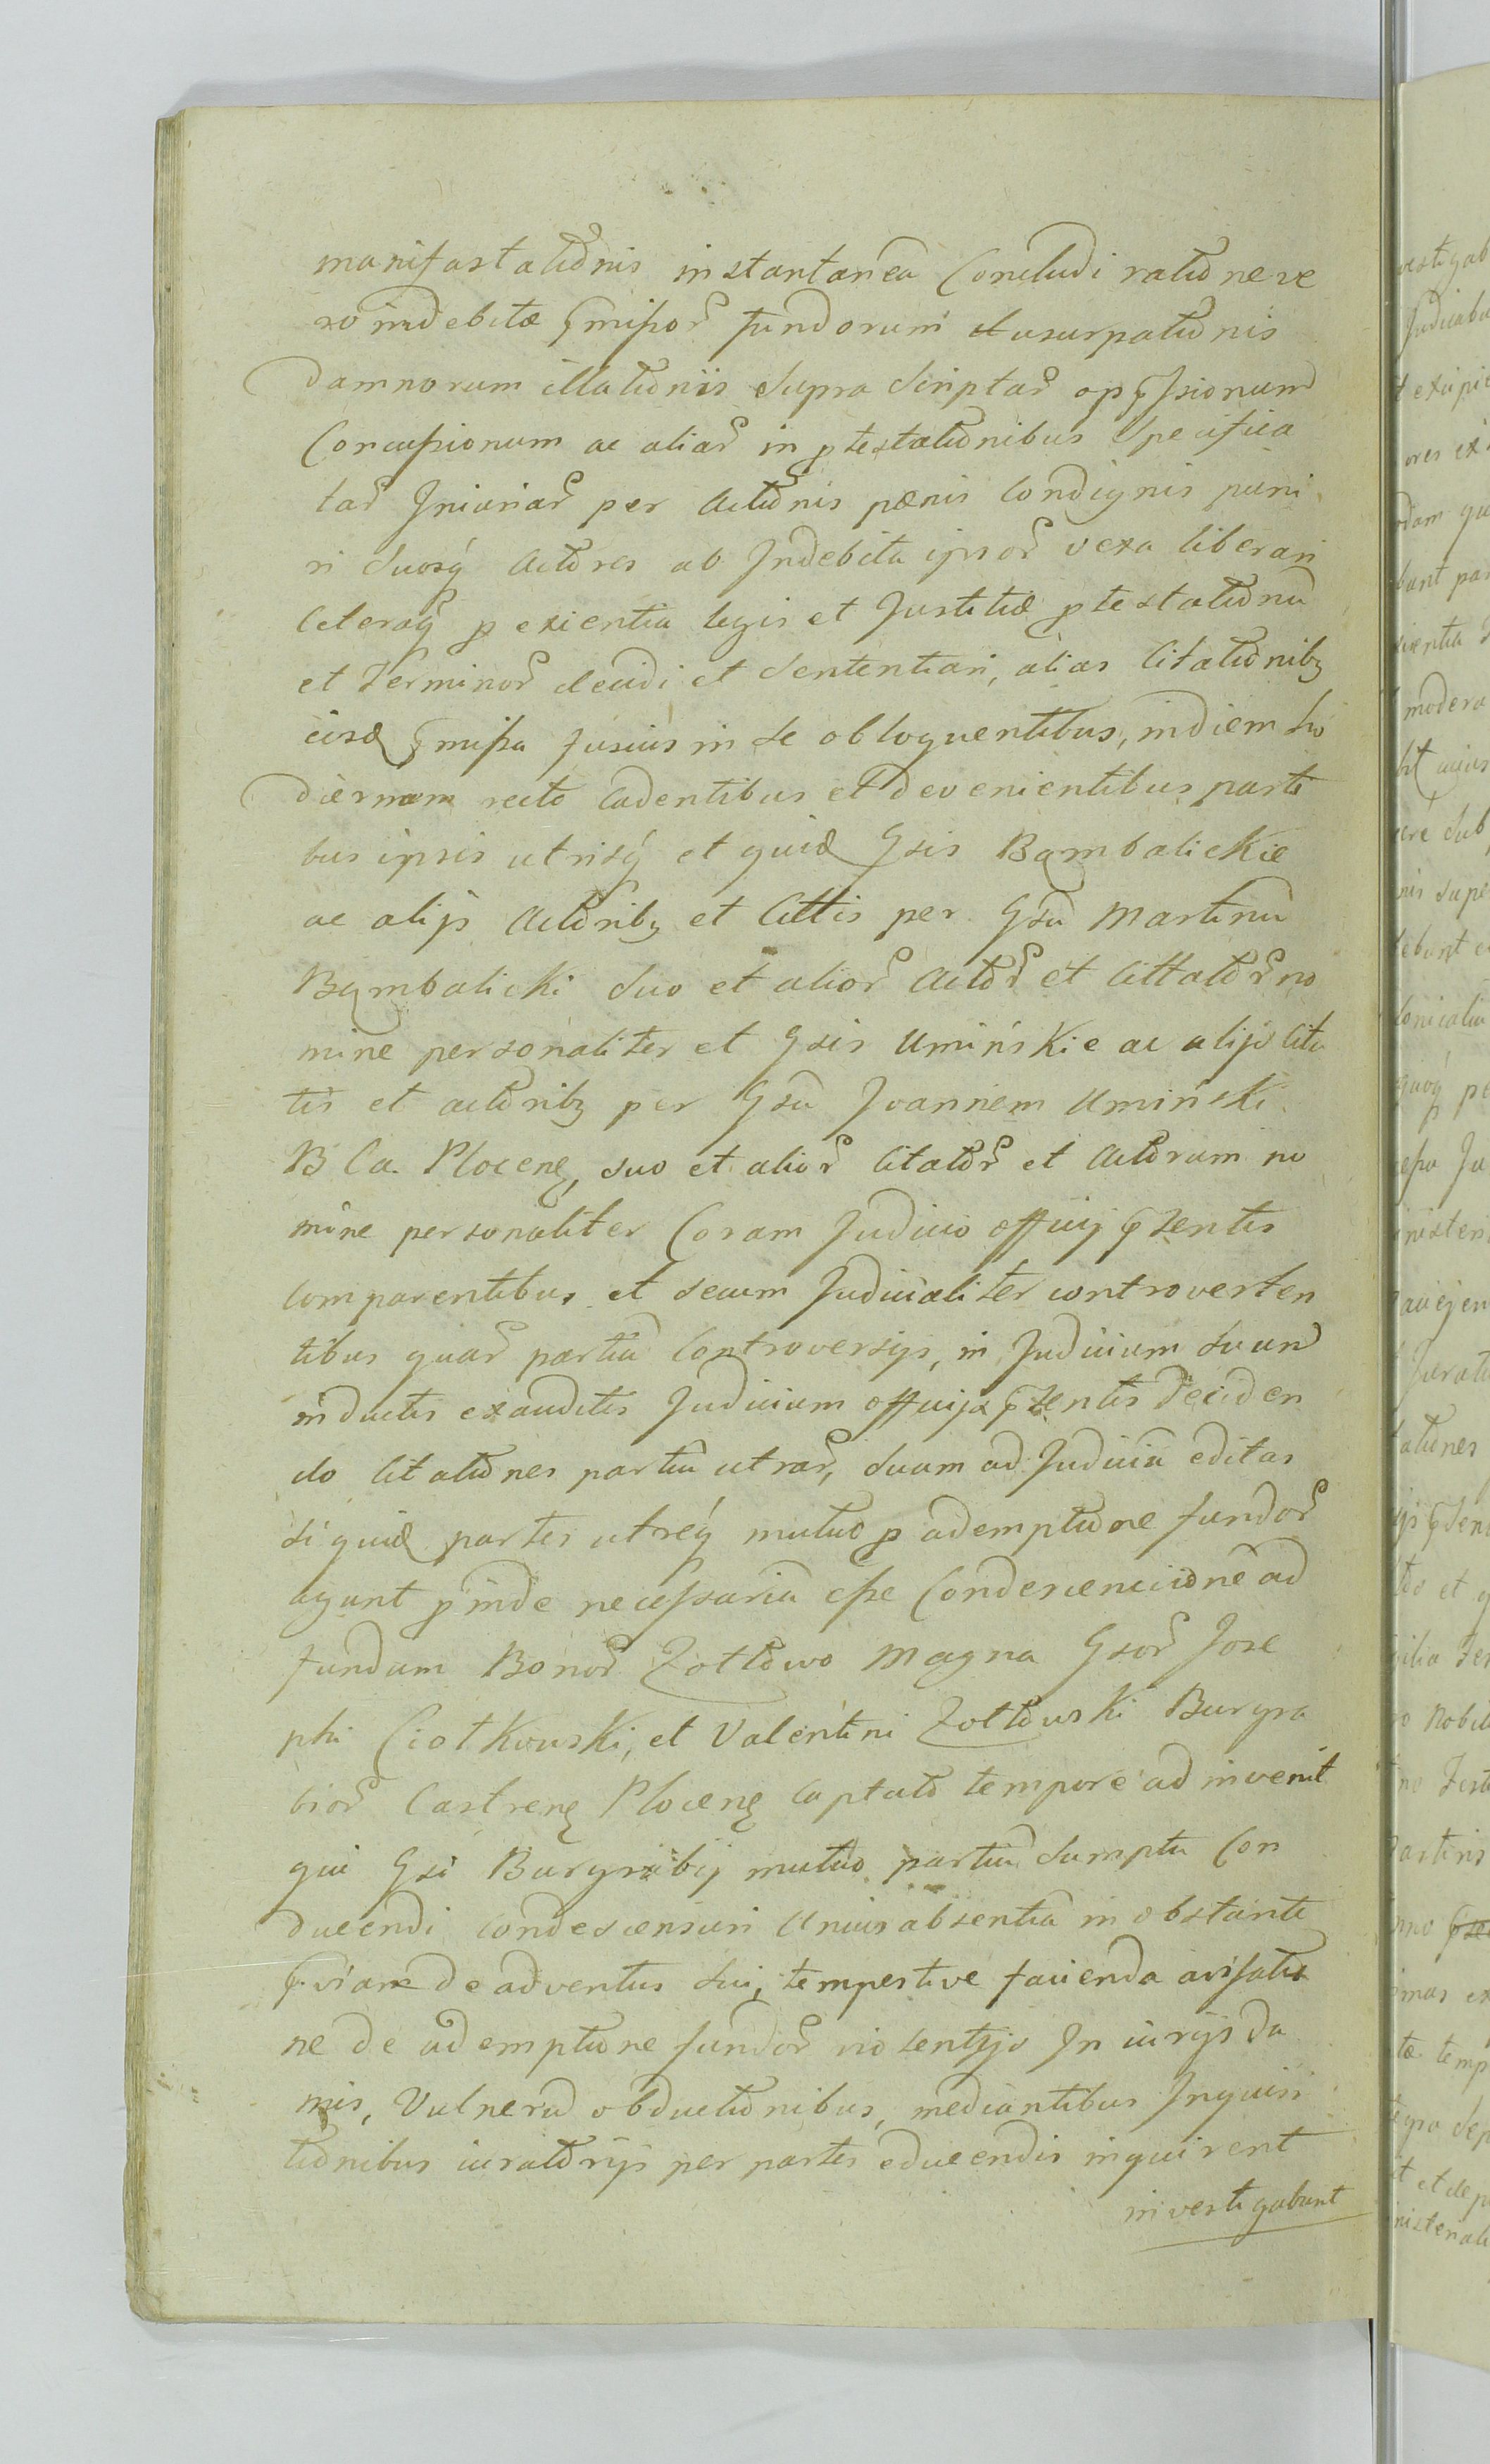 manifestationis instantanea Concludi ratione ve
ro indebitæ pmissor fundorum et usurpationis
damnorum illationis supra scriptar oppssionum
Concussionum ac aliar in ptestationibus specifica
tar Iniuriar per actionis pænis condignis puni
ri suosq Actores ab Indebita ipsor vexa liberari
Ceteraq p exientia legis et Justitiæ ptestationu
et Terminor decidi et sententiari, alias Citationibz
eisd pmissa fusius in se obloquentibus, in diem ho
diernam recto cadentibus et devenientibus parti
bus ipsis utrisq et quid Gsis Bambalickie
ac alijs Actoribz et Cittis per Gsu Martinu
Bambalicki suo et alior Actor et Cittator no
mine personaliter et Gsis Uminskie ac alijs Cita
tis et actoribz per Gsu Joannem Uminski
B Ca. Plocen, suo et alior Citator et Actorum no
mine personaliter Coram Judicio officij psentis
comparentibus et secum Judicialiter controverten
tibus quar partiu Controversijs, in Judicium suum
inductis exauditis Judicium officij psentis deciden
do Citationes partiu utrar, suam ad Judiciu editas
siquid partes utreq mutuo p ademptione fundor
agunt pinde necessariu esse Condescencione ad
fundum Bonor Zołtowo Magna Gsor Jose
phi Ciotkowski, et Valentini Zołtowski Burgra
bior Castren Plocen captato tempore ad invenit
qui Gsi Burgrabij mutuo partiu sumptu Con
ducendi condescensuri Unius absentia in obstante
pviam de adventus sui, tempestive facienda avisatio
ne de ademptione fundor violentijs Iniurijs da
mnis, Vulnerum obductionibus, mediantibus Inquisi
tionibus iuratorijs per partes educendis inquirent
investigabunt